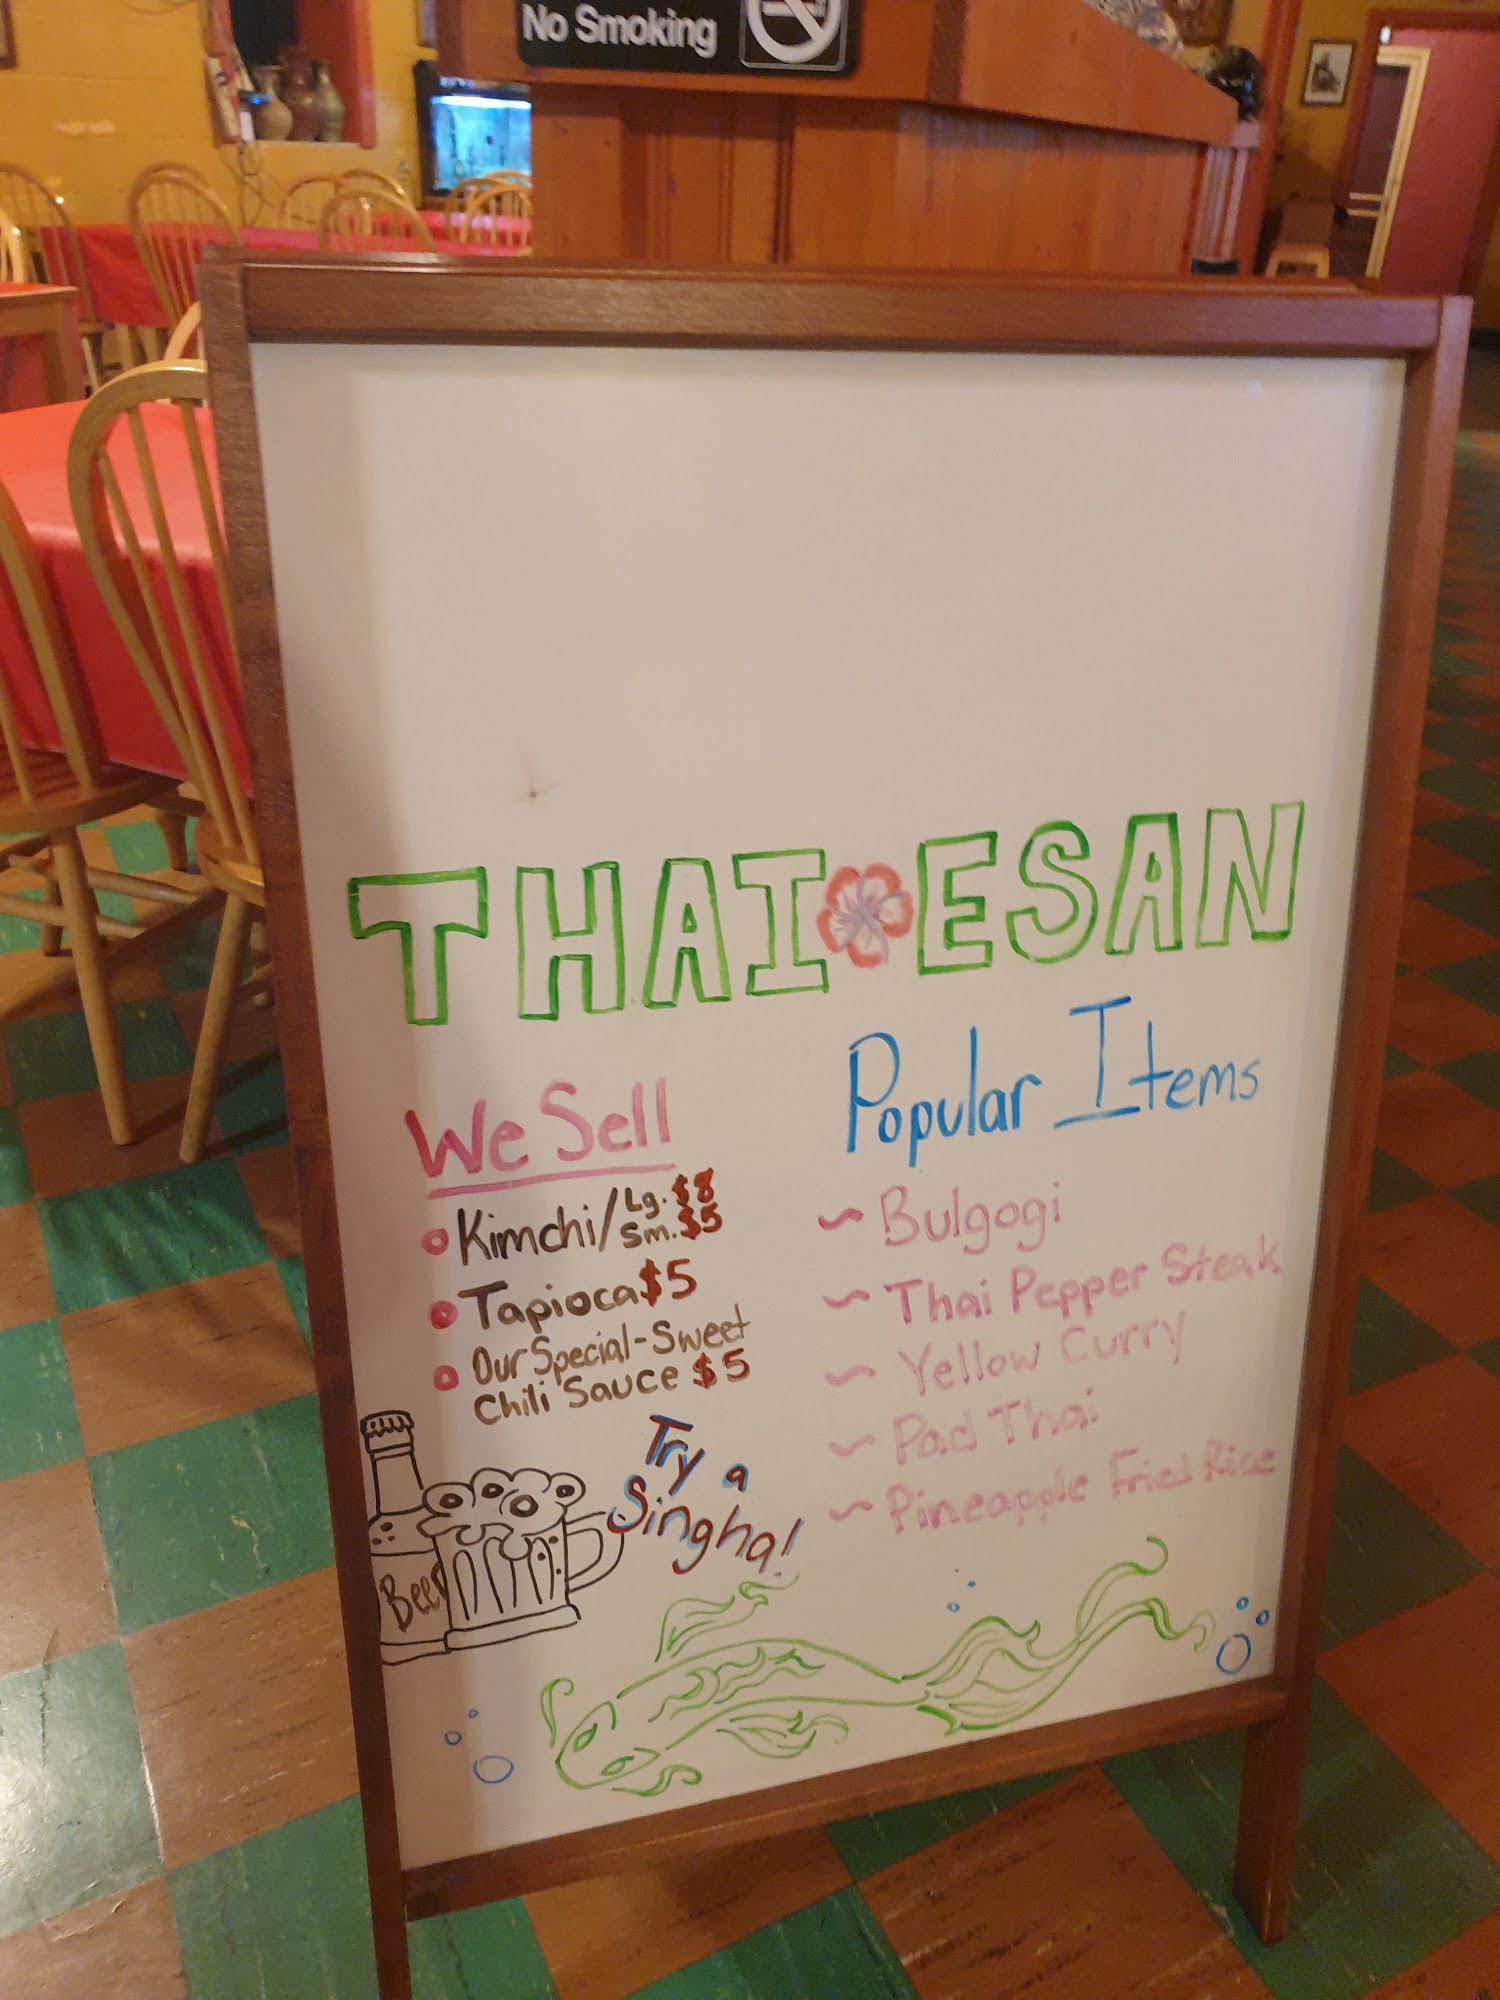 No Smoking
THAI ESAN
We Sell
Kimchi/Lg. $8
Sm. $5
Tapioca $5
Our Special-Sweet
Chili Sauce $5
Popular Items
~ Bulgogi
~ Thai Pepper Steak
~ Yellow Curry
~ Pad Thai
~ Pineapple Fried Rice
Try a
Singha!
Beer